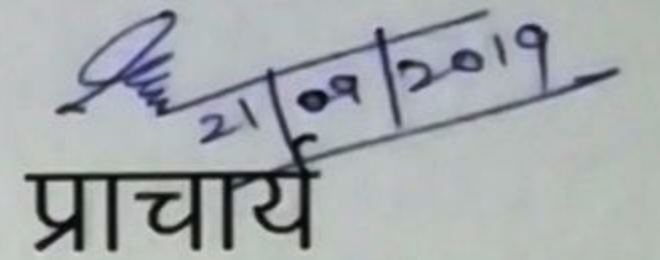 21/09/2019
प्राचार्य